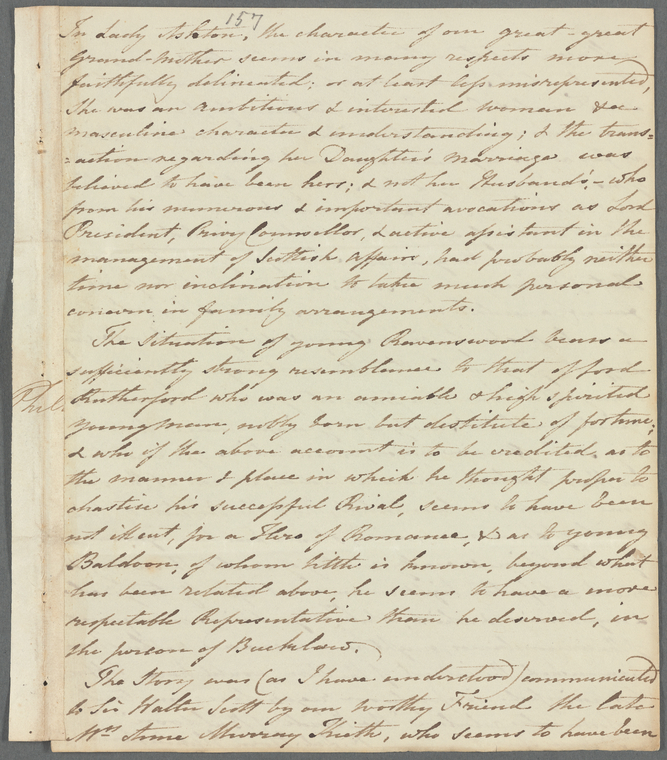 157
In Lady Ashton, the character of our great-great
Grand-Mother seems in many respects more
faithfully delineated; or at least less misrepresented,
She was an ambitious & interested woman of a
masculine character & understanding; & the trans=
=action regarding her Daughter's marriage was
believed to have been hers; & not her Husband's, - who
from his numerous & important avocations as Lord
President, Privy Counsellor, & active assistant in the
management of Scottish Affairs, had probably neither
time nor inclination to take much personal
concern in family arrangements.
The Situation of young Ravenswood bears a
sufficiently strong resemblance to that of Lord
Rutherford who was an amiable & high spirited
young man, nobly born but destitute of fortune;
& who if the above account is to be credited, as to
the manner & place in which he thought proper to
chastise his successful Rival, seems to have been
not ill cut, for a Hero of Romance, & as to young
Baldoon, of whom little is known, beyond what
has been related above, he seems to have a more
respectable Representative than he deserved, in
the person of Bucklaw.
The Story was (as I have understood) communicated
to Sir Walter Scott by our worthy Friend the late
Mrs Anne Murray Kieth, who seems to have been